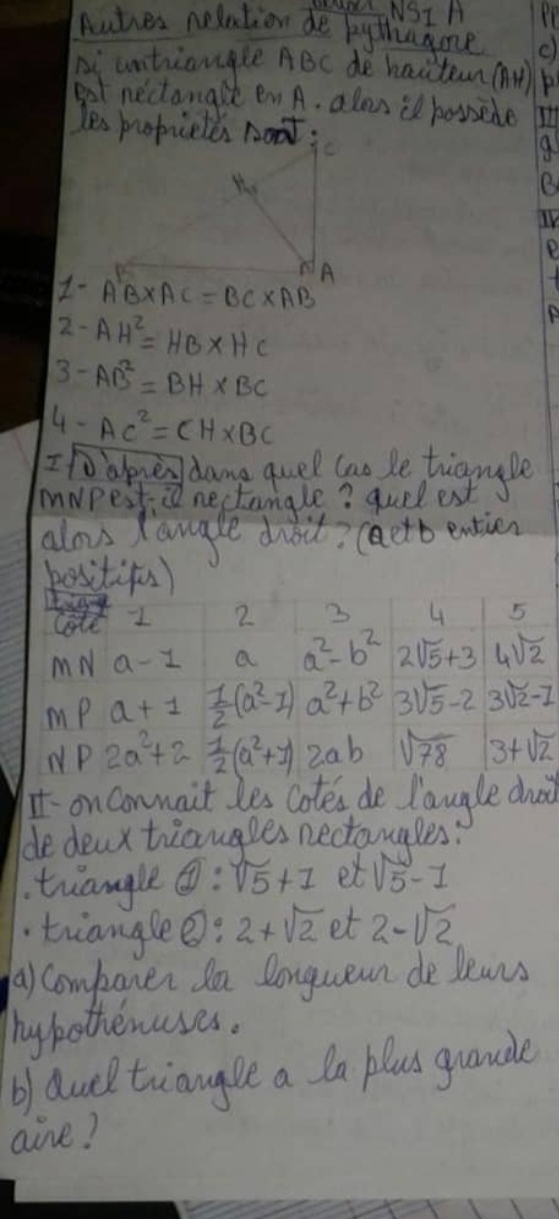 NS1 A
Autres relation de pythagore
si untriangle ABC de hauteur (AH)
est rectangle en A. alors il possède
les propriétés sont:
C
H
B
A
1- AB×AC = BC×AB
2- AH² = HB×HC
3- AB² = BH×BC
4- AC² = CH×BC
I/ D'après dans quel cas le triangle
MNP est-il rectangle? quel est
alors l'angle droit? (a et b entier
positifs)
Coté 1 2 3 4 5
MN a-1 a a²-b² 2√5+3 4√2
MP a+1 ½(a²-1) a²+b² 3√5-2 3√2-1
NP 2a²+2 ½(a²+1) 2ab √78 3+√2
II- on connait les cotés de l'angle droit
de deux triangles rectangles:
. triangle ①: √5+1 et √5-1
. triangle ②: 2+√2 et 2-√2
a) Comparer la longueur de leurs
hypothénuses.
b) Quel triangle a la plus grande
aire?